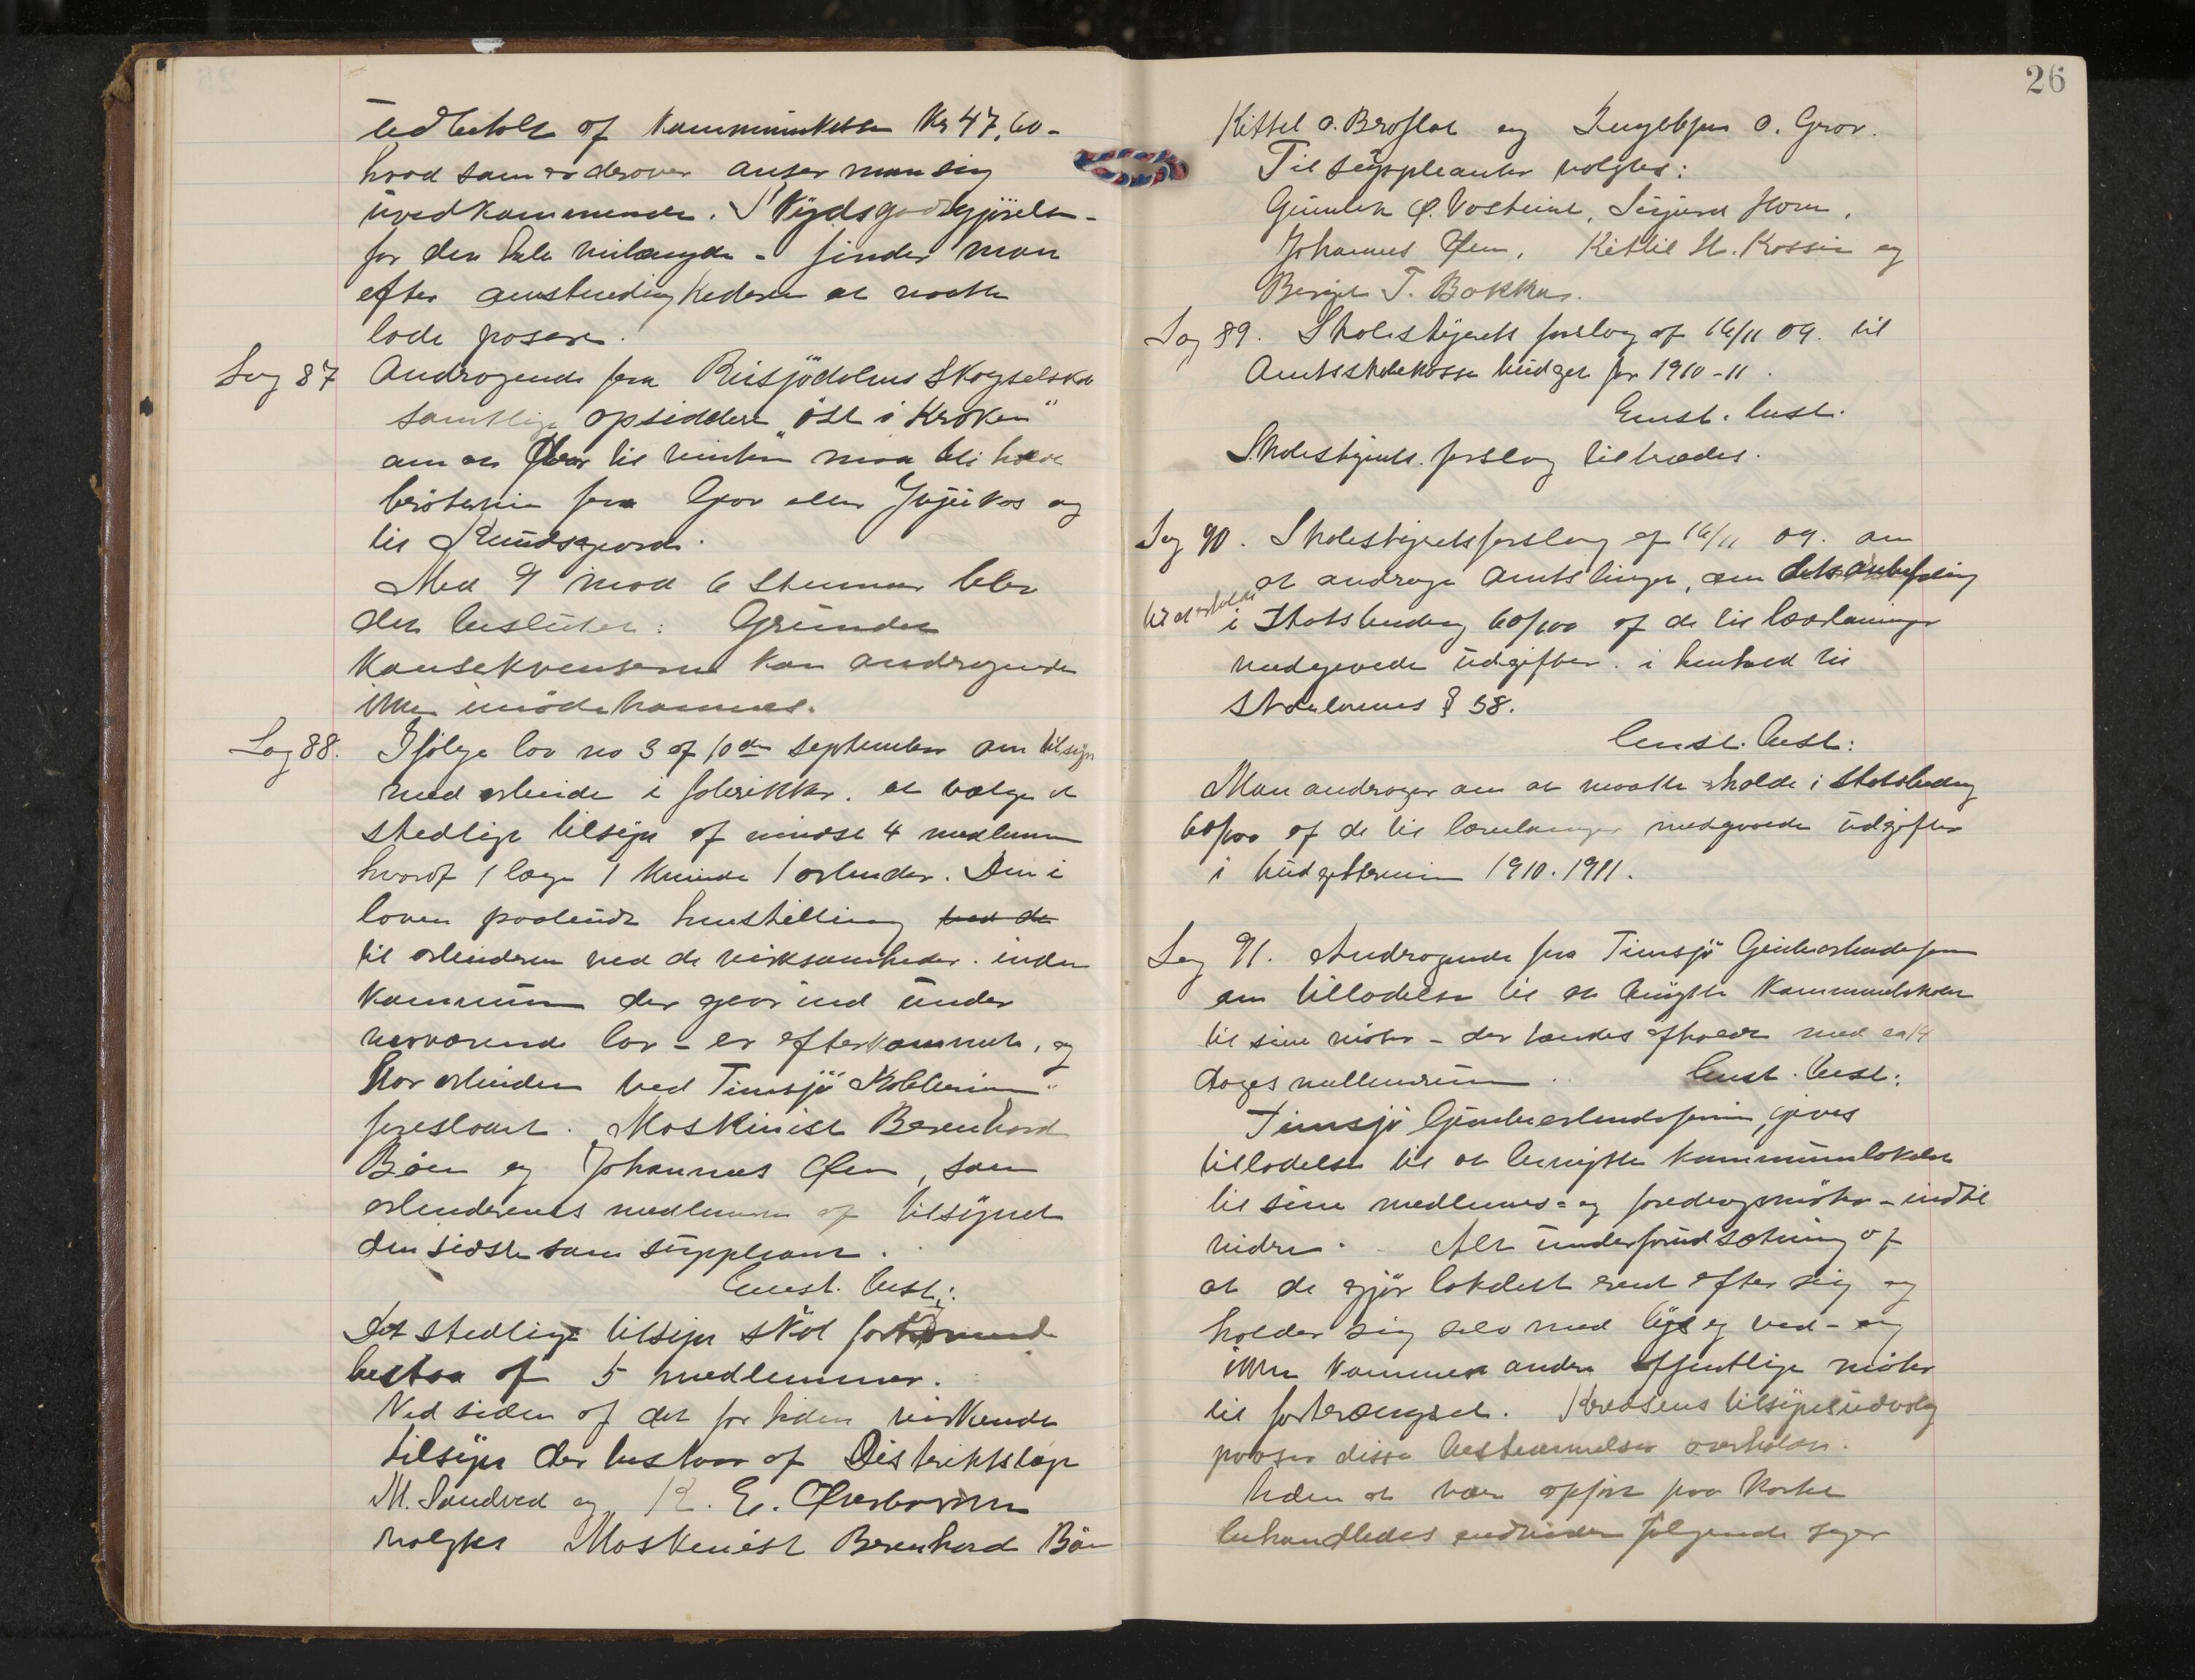 udbetalt af kommunekassen Kr 47,60 -
hvad som er derover anser man sig
uvedkommende. Skydsgodtgjörelsen -
for den hele veilængde - finder man
efter omstendighederne at maatte
lade passere.
Sag 87 Andragende fra Skogselskab
samtlige opsiddere "öst i Kroken"
om at til vinteren maa bli holdt
fra Grov eller og
til
Med 9 mod 6 Stemmer blev
det besluttet: Grundet
Konsekvenserne kan andragende
ikke imödekommes.
Sag 88. Ifölge lov no 3 af 10de september om tilsyn
med arbeide i fabrikker. at vælge et
stedlige tilsyn af mindst 4 medlemmer
hvoraf 1 læge 1 kvinde 1 arbeider. Den i
loven paabudte henstilling ved de
til arbeiderne ved de virksomheder. inden
kommunen der gaar ind under
nærværende lov - er efterkommet, og
har arbeiderne ved Tinnsjö
foreslaaet. Maskinist Berenhard
Böen og Johannes Øen, som
arbeidernes medlemmer af tilsynet
den sidste som suppleant.
Enst. Besl.:
Det stedlige tilsyn skal
bestaa af 5 medlemmer.
Ved siden af det for tiden virkende
tilsyn der bestaar af Distriktslæge
M. Sandved og K. E.
valgtes Maskinist Berenhard Böen
26
Kittel O. Broflat og Ingebjør O. Grov.
Til suppleanter valgtes:
Gunlek Ø. Vosteint, Sigurd Horn,
Johannes Øen, Kittil H. og
Bergit T. Bakkhus.
Sag 89. Skolestyrets forslag af 16/11 09. til
Amtsskolekasse budget for 1910-11.
Enst. besl.
Skolestyrets forslag tiltrædes.
Sag 90. Skolestyrets forslag af 16/11 09. om
at andrage Amtstinget, om dets anbefaling
til at erholde i Statsbidrag 60/100 af de til lærlönninger
medgaaede udgifter. i henhold til
Skolelovens § 58.
Enst. Besl:
Man andrager om at maatte erholde i Statsbidrag
60/100 af de til medgaaede udgifter
i budgetterminen 1910. 1911.
Sag 91. Andragende fra Tinnsjö Grubearbeiderforening
om tilladelse til at benytte Kommunelokalet
til sine möter - der tænkes afholdt med ca 14
dages mellemrum. Enst. Besl:
Tinnsjö Grubearbeiderforening, gives
tilladelse til at benytte kommunelokalet
til sine medlems- og foredragsmöter - indtil
videre. Alt under forudsætning af
at de gjör lokalet rent efter sig og
holder sig selv med lys og ved - og
ikke kommer andre offentlige möter
til fortrængsel. Kredsens tilsynsudvalg
paaser disse bestemmelser overholdt.
Uden at være opfört paa kartet
behandledes endvidere fölgende sager